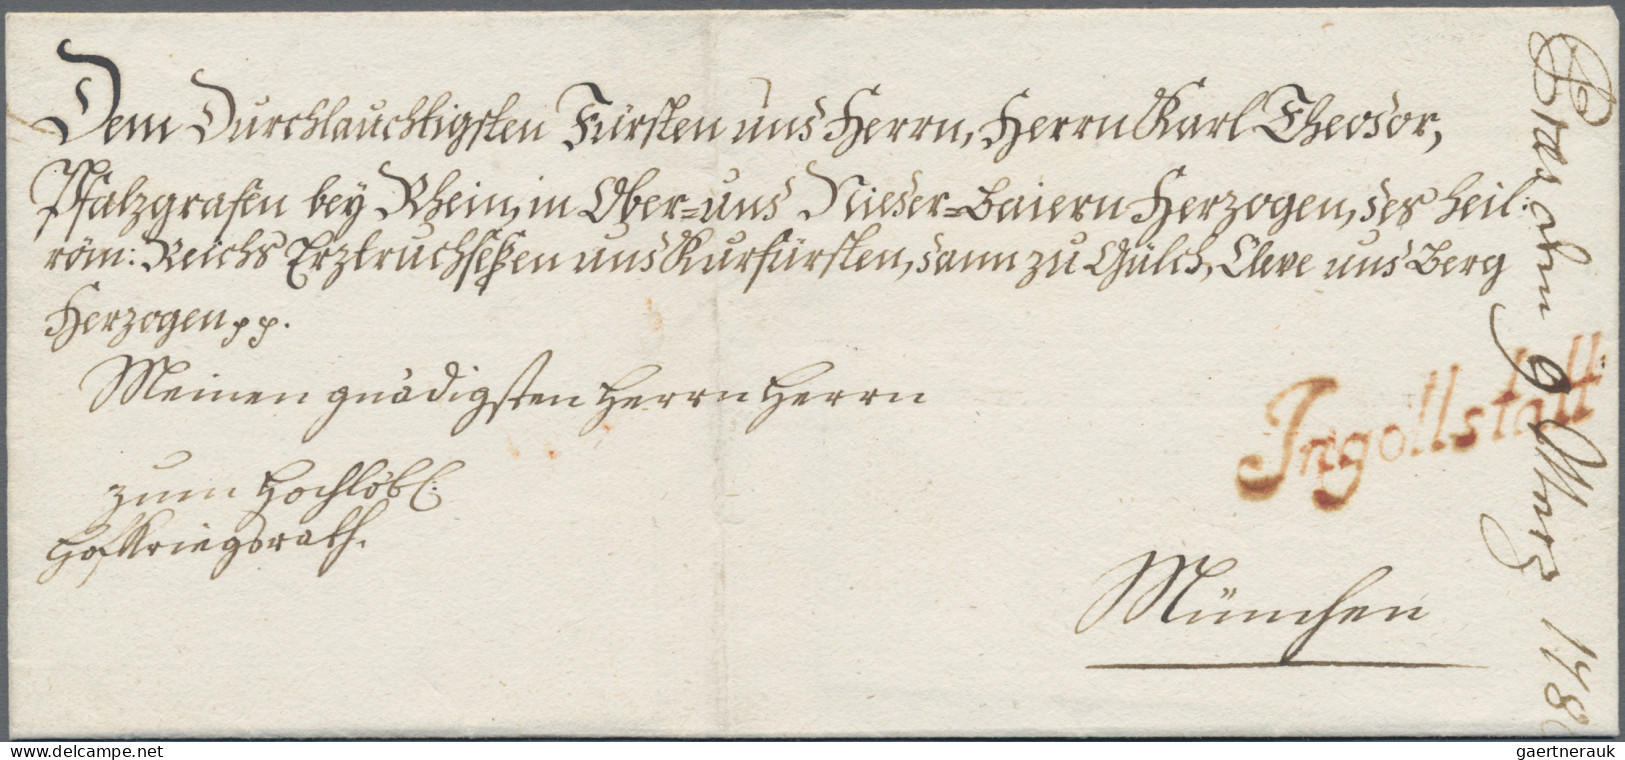 Dem Durchlauchtigsten Fürsten und Herrn, Herrn Karl Theodor,
Pfalzgrafen bey Rhein, in Ober= und Nieder=Baiern Herzogen, des heil:
röm: Reichs Erztruchseßen und Kurfürsten, dann zu Gülch, Cleve und Berg
Herzogen pp.
Meinen gnädigsten Herrn Herrn
zum Hochlöbl:
Hofkriegsrath.
Ingollstatt
München
den 9 Merz 178
www.delcampe.net
gaertnerauk